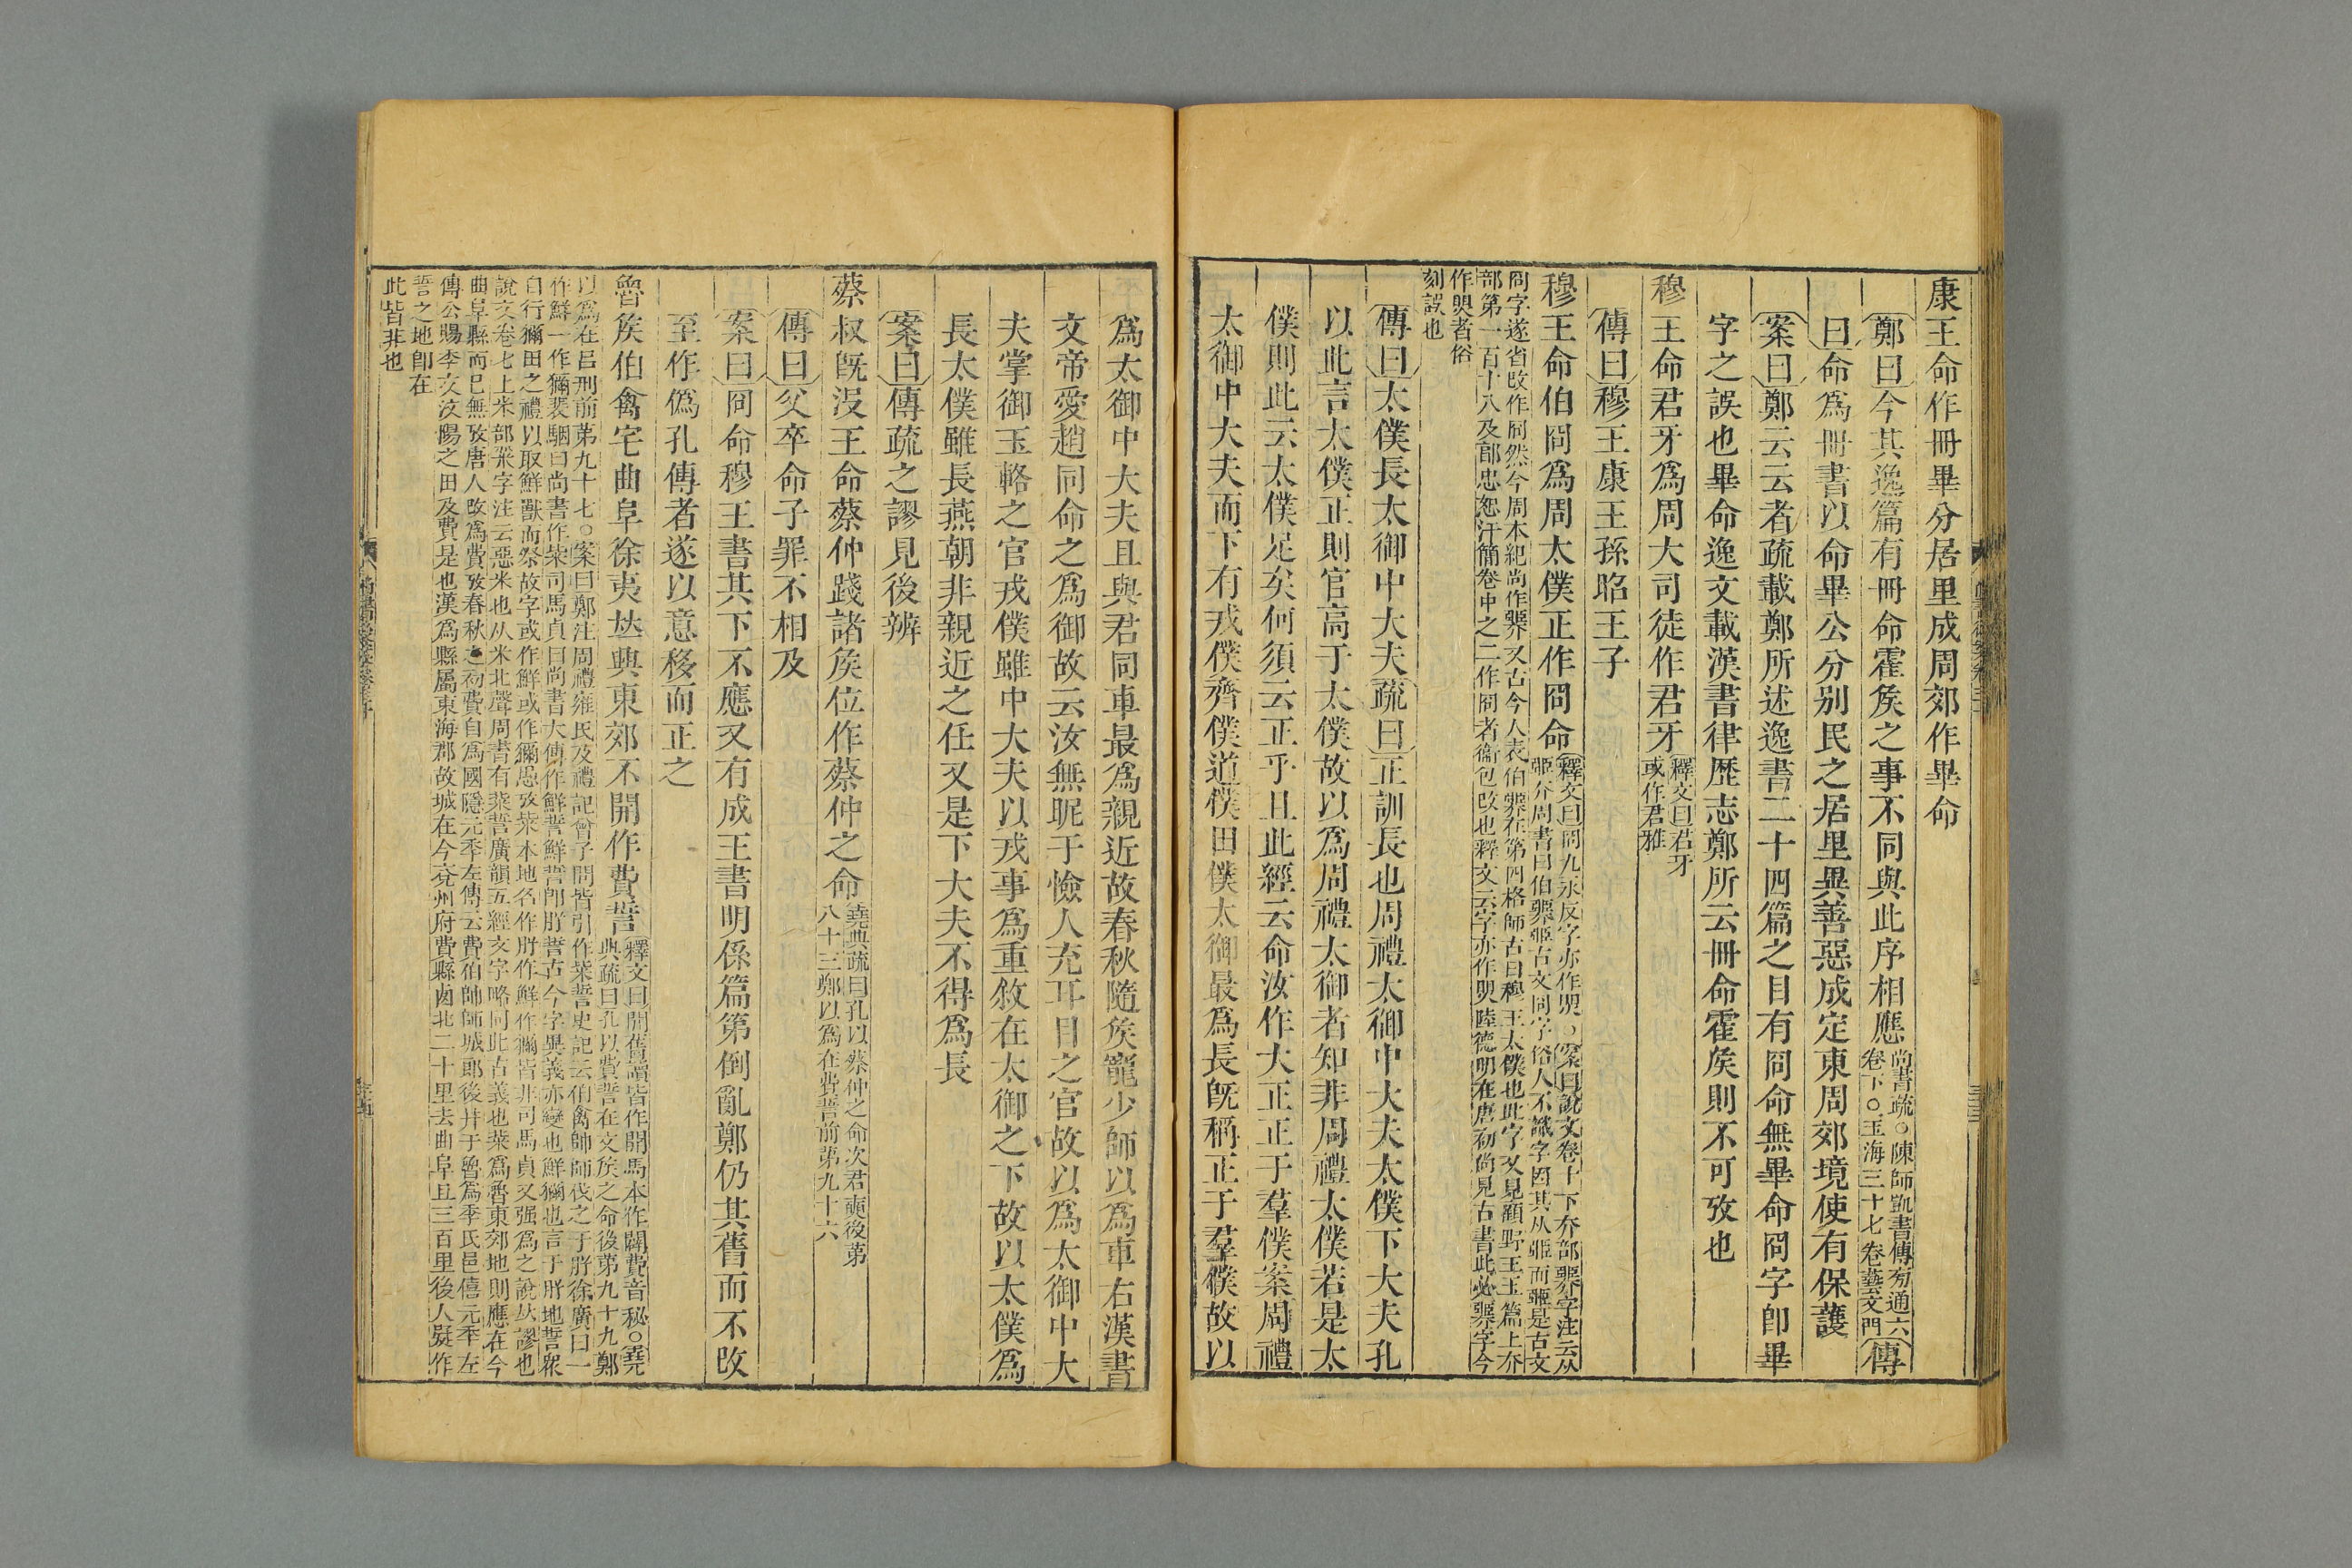 康王命作冊畢分居里成周郊作畢命
鄭曰今其逸篇有冊命霍矦之事不同與此序相應尚書疏○陳師凱書傳旁通六
卷下○玉海三十七卷藝文門傳
曰命爲冊書以命畢公分别民之居里異善惡成定東周郊境使有保護
案曰鄭云云者疏載鄭所述逸書二十四篇之目有冏命無畢命冏字卽畢
字之誤也畢命逸文載漢書律歷志鄭所云冊命霍矦則不可攷也
穆王命君牙爲周大司徒作君牙釋文曰君牙
或作君雅
傳曰穆王康王孫昭王子
穆王命伯冏爲周太僕正作冏命釋文曰冏九永反字亦作煛○案曰說文卷十下夰部臩字注云从
𦣞夰周書曰伯臩𦣞古文冏字俗人不識字因其从𦣞而𦣞是古文
冏字遂省改作冏然今周本紀尚作臩又古今人表伯臩在第四格師古曰穆王太僕也此字又見顧野王玉篇上夰
部第一百十八及郭忠恕汗簡卷中之二作冏者衞包改也釋文云字亦作煛陸德明在唐初尚見古書此必臩字今
作煛者俗
刻誤也
傳曰太僕長太御中大夫疏曰正訓長也周禮太御中大夫太僕下大夫孔
以此言太僕正則官高于太僕故以爲周禮太御者知非周禮太僕若是太
僕則此云太僕足矣何須云正乎且此經云命汝作大正正于羣僕案周禮
太御中大夫而下有戎僕齊僕道僕田僕太御最爲長旣稱正于羣僕故以
爲太御中大夫且與君同車最爲親近故春秋隨矦寵少師以爲車右漢書
文帝愛趙同命之爲御故云汝無昵于憸人充耳目之官故以爲太御中大
夫掌御玉輅之官戎僕雖中大夫以戎事爲重敘在太御之下故以太僕爲
長太僕雖長燕朝非親近之任又是下大夫不得爲長
案曰傳疏之謬見後辨
蔡叔旣没王命蔡仲踐諸矦位作蔡仲之命堯典疏曰孔以蔡仲之命次君奭後第
八十三鄭以爲在費誓前第九十六
傳曰父卒命子罪不相及
案曰冏命穆王書其下不應又有成王書明係篇第倒亂鄭仍其舊而不改
至作僞孔傳者遂以意移而正之
魯矦伯禽宅曲阜徐夷竝興東郊不開作費誓釋文曰開舊讀皆作開馬本作闢費音秘○堯
典疏曰孔以費誓在文矦之命後第九十九鄭
以爲在呂刑前第九十七○案曰鄭注周禮雍氏及禮記曾子問皆引作粊誓史記云伯禽師師伐之于肸徐廣曰一
作鮮一作獮裴駰曰尚書作粊司馬貞曰尚書大傳作鮮誓鮮誓卽肸誓古今字異義亦變也鮮獮也言于肸地誓衆
自行獮田之禮以取鮮獸而祭故字或作鮮或作獮愚攷粊本地名作肸作鮮作獮皆非司馬貞又强爲之說竝謬也
說文卷七上米部粊字注云惡米也从米北聲周書有粊誓廣韻五經文字略同此古義也粊爲魯東郊地則應在今
曲阜縣而已無攷唐人改爲費攷春秋之初費自爲國隱元年左傳云費伯帥師城郎後幷于魯爲季氏邑僖元年左
傳公賜季友汶陽之田及費是也漢爲縣屬東海郡故城在今兗州府費縣西北二十里去曲阜且三百里後人疑作
誓之地卽在
此皆非也